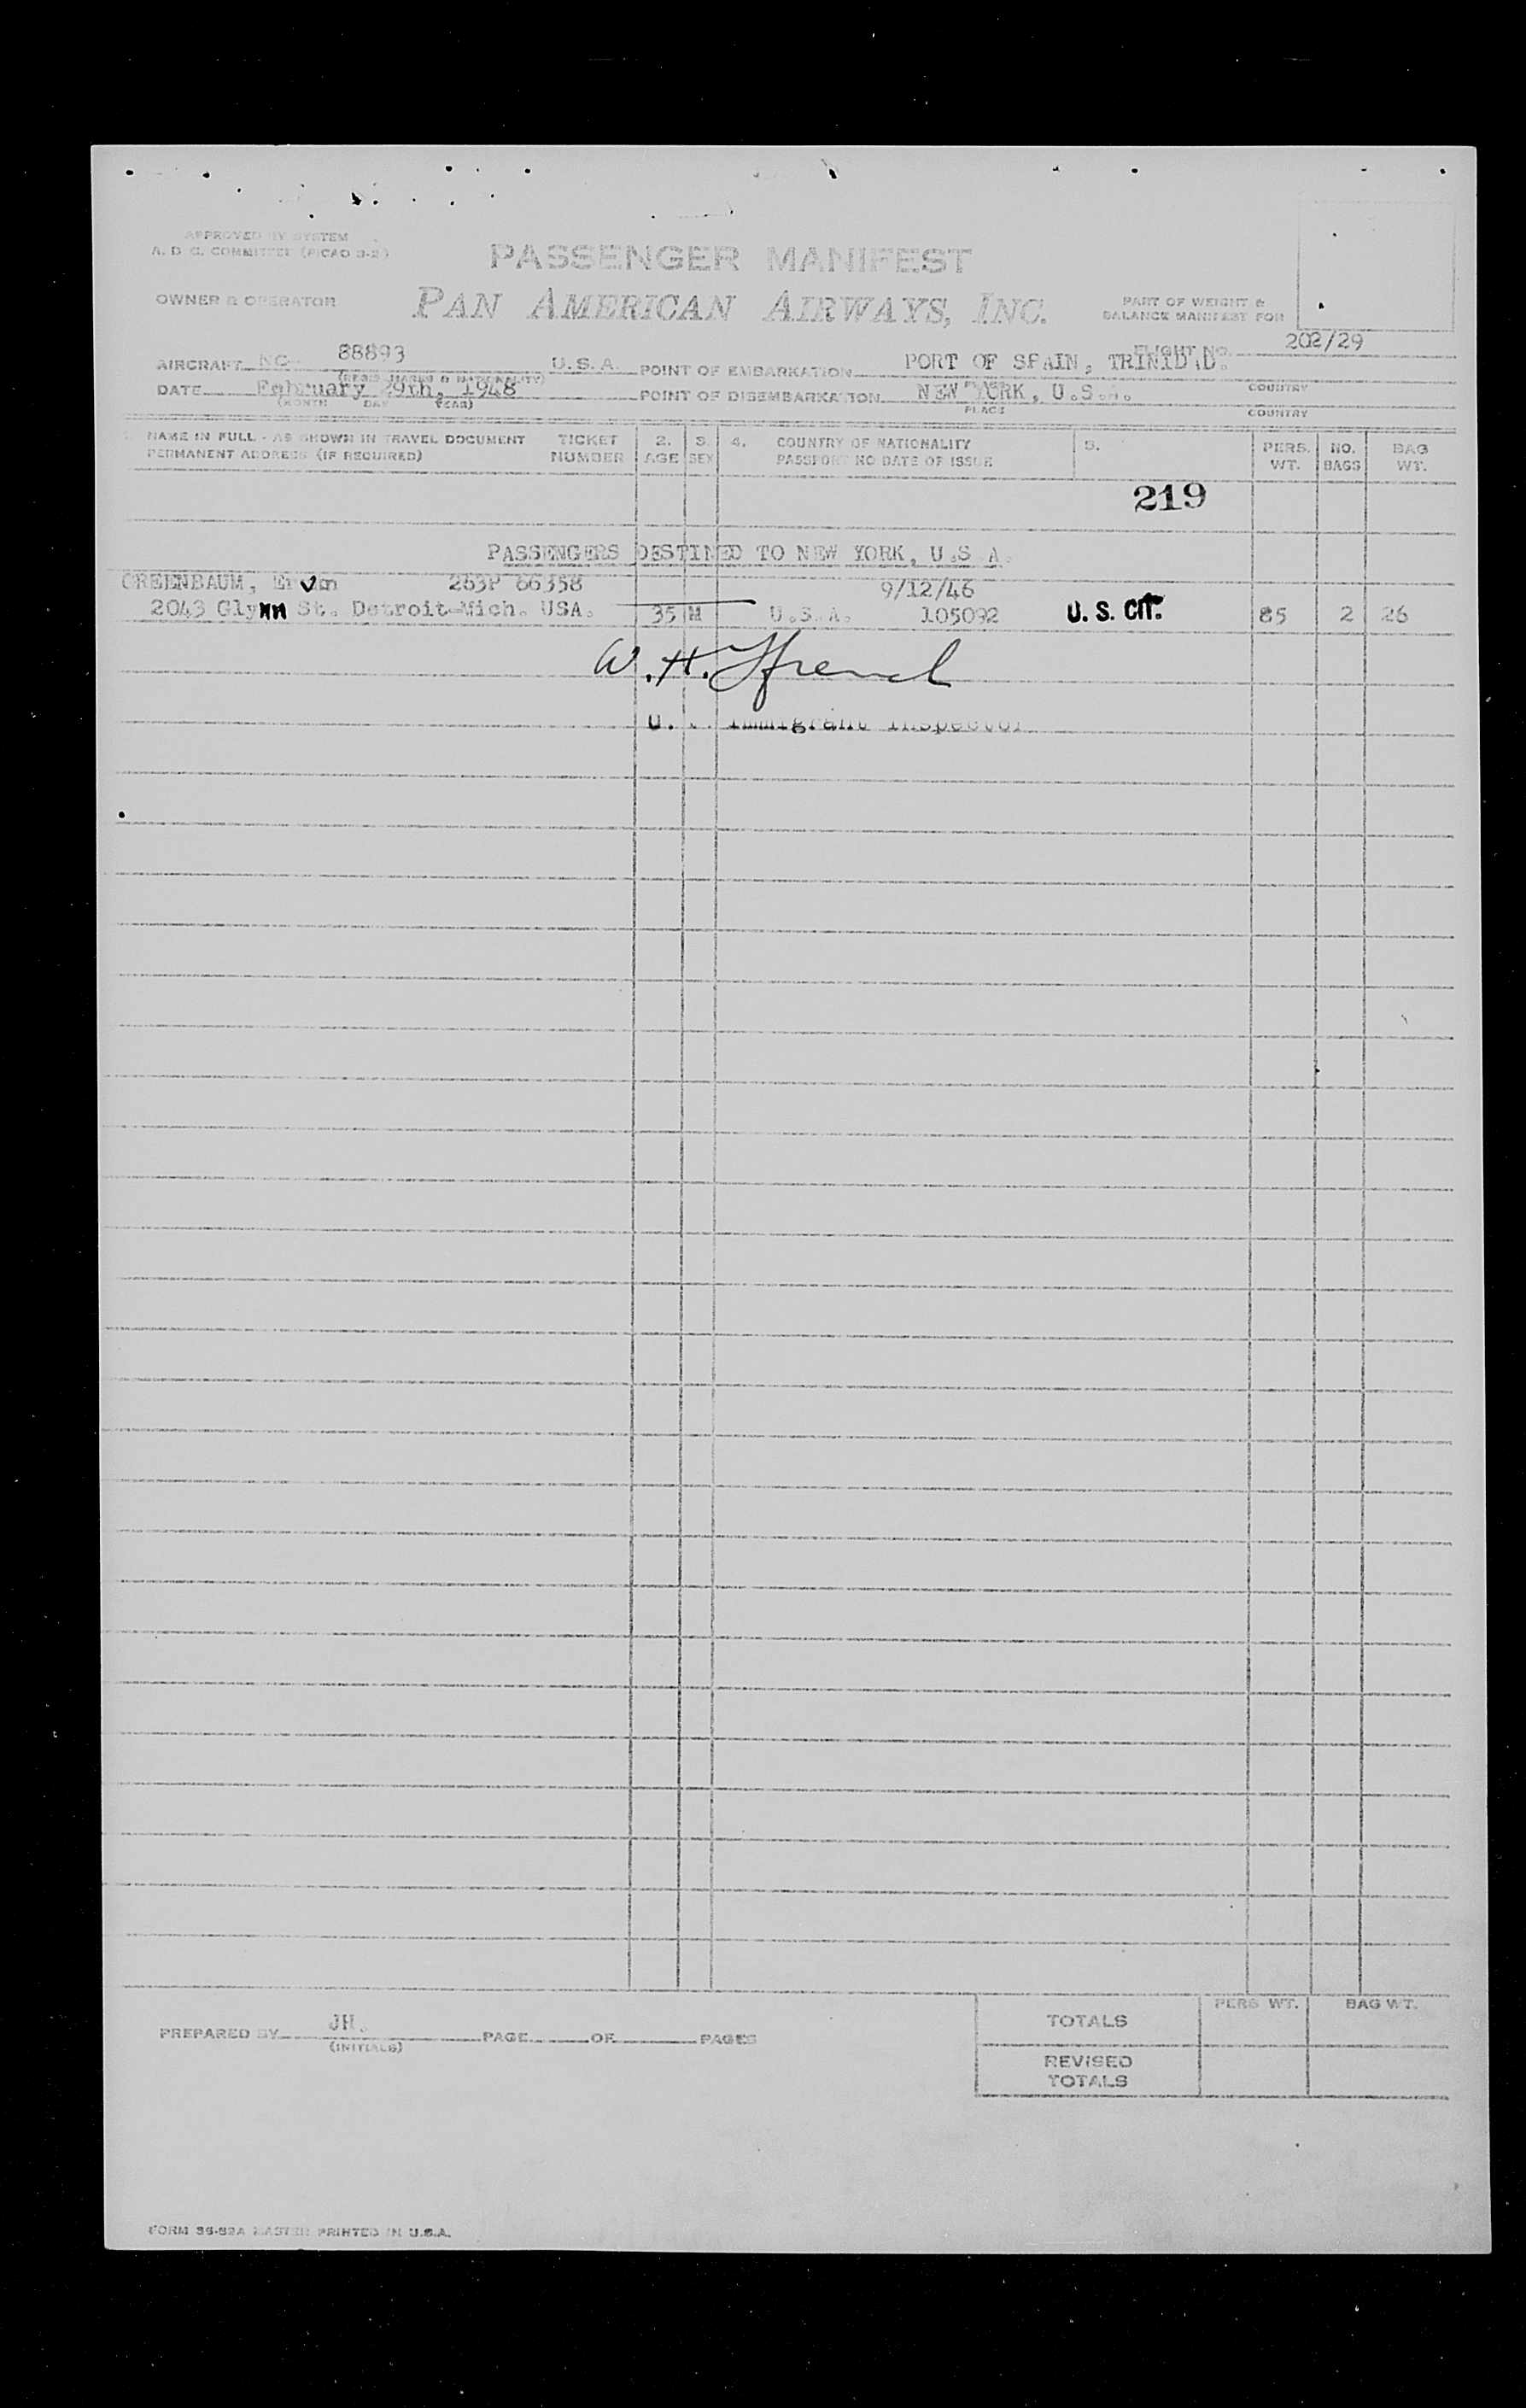 APPROVED BY SYSTEM
A. D. C. COMMITTEE (PICAO 3-2)
PASSENGER MANIFEST
OWNER & OPERATOR
PAN AMERICAN AIRWAYS, INC.
PART OF WEIGHT &
BALANCE MANIFEST FOR
FLIGHT NO. 202/29
AIRCRAFT NC 88893 U.S.A. POINT OF EMBARKATION PORT OF SPAIN, TRINIDAD.
(REGIS. MARKS & NATIONALITY) PLACE COUNTRY
DATE February 29th, 1948 POINT OF DISEMBARKATION NEW YORK, U.S.A.
(MONTH DAY YEAR) PLACE COUNTRY
NAME IN FULL - AS SHOWN IN TRAVEL DOCUMENT TICKET 2. 3. 4. COUNTRY OF NATIONALITY 5. PERS. NO. BAG
PERMANENT ADDRESS (IF REQUIRED) NUMBER AGE SEX PASSPORT NO DATE OF ISSUE WT. BAGS WT.
219
PASSENGERS DESTINED TO NEW YORK, U.S.A.
GREENBAUM, 263P 66358 9/12/46
2043 Glynn St. Detroit-Mich. USA. 35 M U.S.A. 105092 U. S. CIT. 85 2 26
W. H. French
U. S. Immigrant Inspector
PREPARED BY JH. PAGE OF PAGES
(INITIALS)
PERS WT. BAG WT.
TOTALS
REVISED
TOTALS
FORM MASTER PRINTED IN U.S.A.